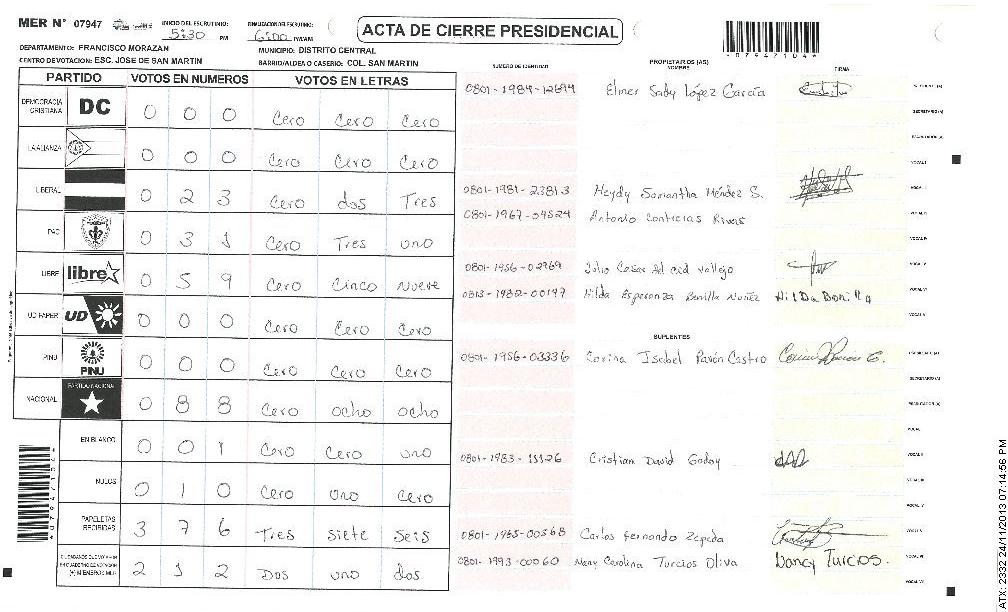 MER N° 07947
INICIO DEL ESCRUTINIO: 5:30 PM
FINALIZACION DEL ESCRUTINIO: 6:00 PM/AM
ACTA DE CIERRE PRESIDENCIAL
*07947104*
DEPARTAMENTO: FRANCISCO MORAZAN
MUNICIPIO: DISTRITO CENTRAL
CENTRO DE VOTACION: ESC. JOSE DE SAN MARTIN
BARRIO/ALDEA O CASERIO: COL. SAN MARTIN
PARTIDO VOTOS EN NUMEROS VOTOS EN LETRAS
DEMOCRACIA CRISTIANA DC 0 0 0 Cero Cero Cero
LA ALIANZA 0 0 0 Cero Cero Cero
LIBERAL 0 2 3 Cero dos Tres
PAC 0 3 1 Cero Tres uno
LIBRE libre 0 5 9 Cero Cinco nueve
UD FAPER UD 0 0 0 Cero Cero Cero
PINU PINU 0 0 0 Cero Cero Cero
NACIONAL PARTIDO NACIONAL 0 8 8 Cero ocho ocho
EN BLANCO 0 0 1 Cero Cero uno
NULOS 0 1 0 Cero uno Cero
PAPELETAS RECIBIDAS 3 7 6 Tres siete seis
2 1 2 Dos uno dos
NUMERO DE IDENTIDAD PROPIETARIOS (AS) NOMBRE FIRMA
0801-1984-12694 Elmer Sady López García
0801-1981-23813 Heydy Samantha Méndez S.
0801-1967-04524 Antonio Contreras Rivas
0801-1956-02969 Julio Cesar vallejo
0813-1980-00197 Hilda Esperanza Bonilla Nuñez HilDa Bonilla
SUPLENTES
0801-1956-03336 Corina Isabel Pavón Castro
0801-1983-11126 Cristian David Godoy
0801-1965-00568 Carlos fernando Zepeda
0801-1993-00060 Nancy Carolina Turcios Oliva Nancy Turcios.
*07947104*
ATX: 2332 24/11/2013 07:14:56 PM